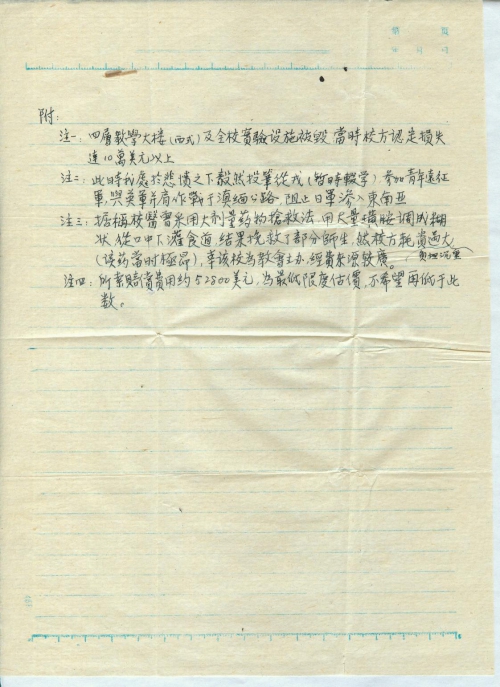 第 頁
附:
注一: 四層教學大楼(西式)及全校實驗设施被毁 當時校方認定損失
達10萬美元以上
注二: 此時我處於悲憤之下毅然投筆從戎(暂時輟学)参加青年遠征
軍,與英軍并肩作戰于滇缅公路,阻止日軍滲入東南亚
注三: 據稱校醫曾采用大剂量药物搶救法 用大量磺胺調成糊
状 從口中下灌食道 结果挽救了部分師生,然校方耗資過大
(该药當時極昂),幸该校為教會主办,經費來源较廣。
負担沉重
注四: 所索賠償費用約52800美元,為最低限度估價,不希望再低于此
数。